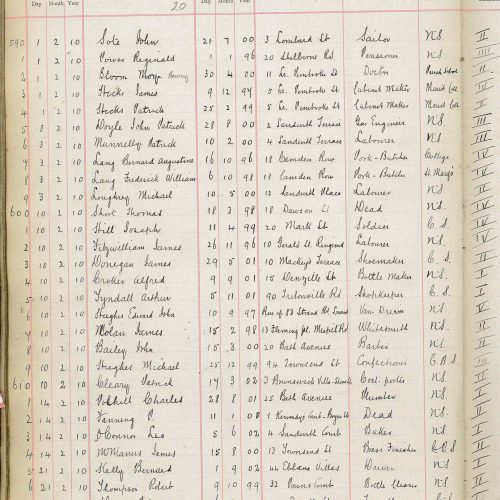 Day Month Year 20 Day Month Year
590 1 2 10 Sote John 21 7 00 3 Lombard St Sailor N.S. II
1 1 2 10 Power Reginald 1 1 96 20 Shelbourne Rd Pensioner N.S. IIII
2 1 2 10 Bloom 30 4 00 11 Lr. Pembroke St Doctor II
3 1 2 10 Hicks James 9 12 97 5 Lr. Pembroke St Cabinet Maker
4 1 2 10 Hicks Patrick 25 2 99 5 Lr. Pembroke St Cabinet Maker I
5 3 2 10 Doyle John Patrick 28 8 00 2 Sandwith Terrace Gas Engineer N.S. III
6 3 2 10 Munnelly Patrick 10 2 00 4 Sandwith Terrace Labourer N.S. III
7 3 2 10 Lang Bernard Augustine 16 10 96 18 Camden Row Pork-Butcher College IV
8 3 2 10 Lang Frederick William 6 10 98 18 Camden Row Pork-Butcher St Mary's IV
9 3 2 10 Loughrey Michael 10 5 00 12 Sandwith Place Labourer N.S. II
600 10 2 10 Short Thomas 18 3 98 18 Dawson St Dead N.S. IV
1 10 2 10 Hill Joseph 11 4 99 20 Mark St Soldier C.S. IV
2 10 2 10 Fitzwilliam James 26 11 96 10 Gerald St Ringsend Labourer N.S. IV
3 10 2 10 Donegan James 29 5 01 10 Mackey's Terrace Shoemaker C.S. II
4 10 2 10 Croker Alfred 9 9 01 15 Denzille St Bottle Maker N.S. I
5 10 2 10 Tyndall Arthur 5 11 01 90 Rd Shopkeeper C.S. I
6 10 2 10 Hughes Edward John 10 9 97 Rere of 33 Strand Rd Van Driver N.S. V
7 10 2 10 Nolan James 15 2 98 13 Whitesmith N.S. II
8 10 2 10 Bailey John 15 3 00 20 Bath Avenue Barber N.S. II
9 10 2 10 Hughes Michael 25 12 99 94 Townsend St Confectioner C.B.S. III
610 10 2 10 Cleary Patrick 17 3 02 3 Brunswick Villa Coal porter N.S. I
1 14 2 10 Polhill Charles 28 8 01 25 Bath Avenue Plumber N.S. I
2 14 2 10 Fanning P 11 1 00 1 Kennedys Cont. Dead N.S. I
3 14 2 10 O'Connor Leo 5 6 02 4 Sandwith Baker N.S. I
4 14 2 10 McManus James 15 8 00 13 Townsend St Brass Finisher C.B.S. II
5 21 2 10 Kelly Bernard 1 9 02 44 Ebbana Villas Waiter N.S. I
6 21 2 10 Thompson Robert 9 10 99 32 Bottle Blower N.S. II